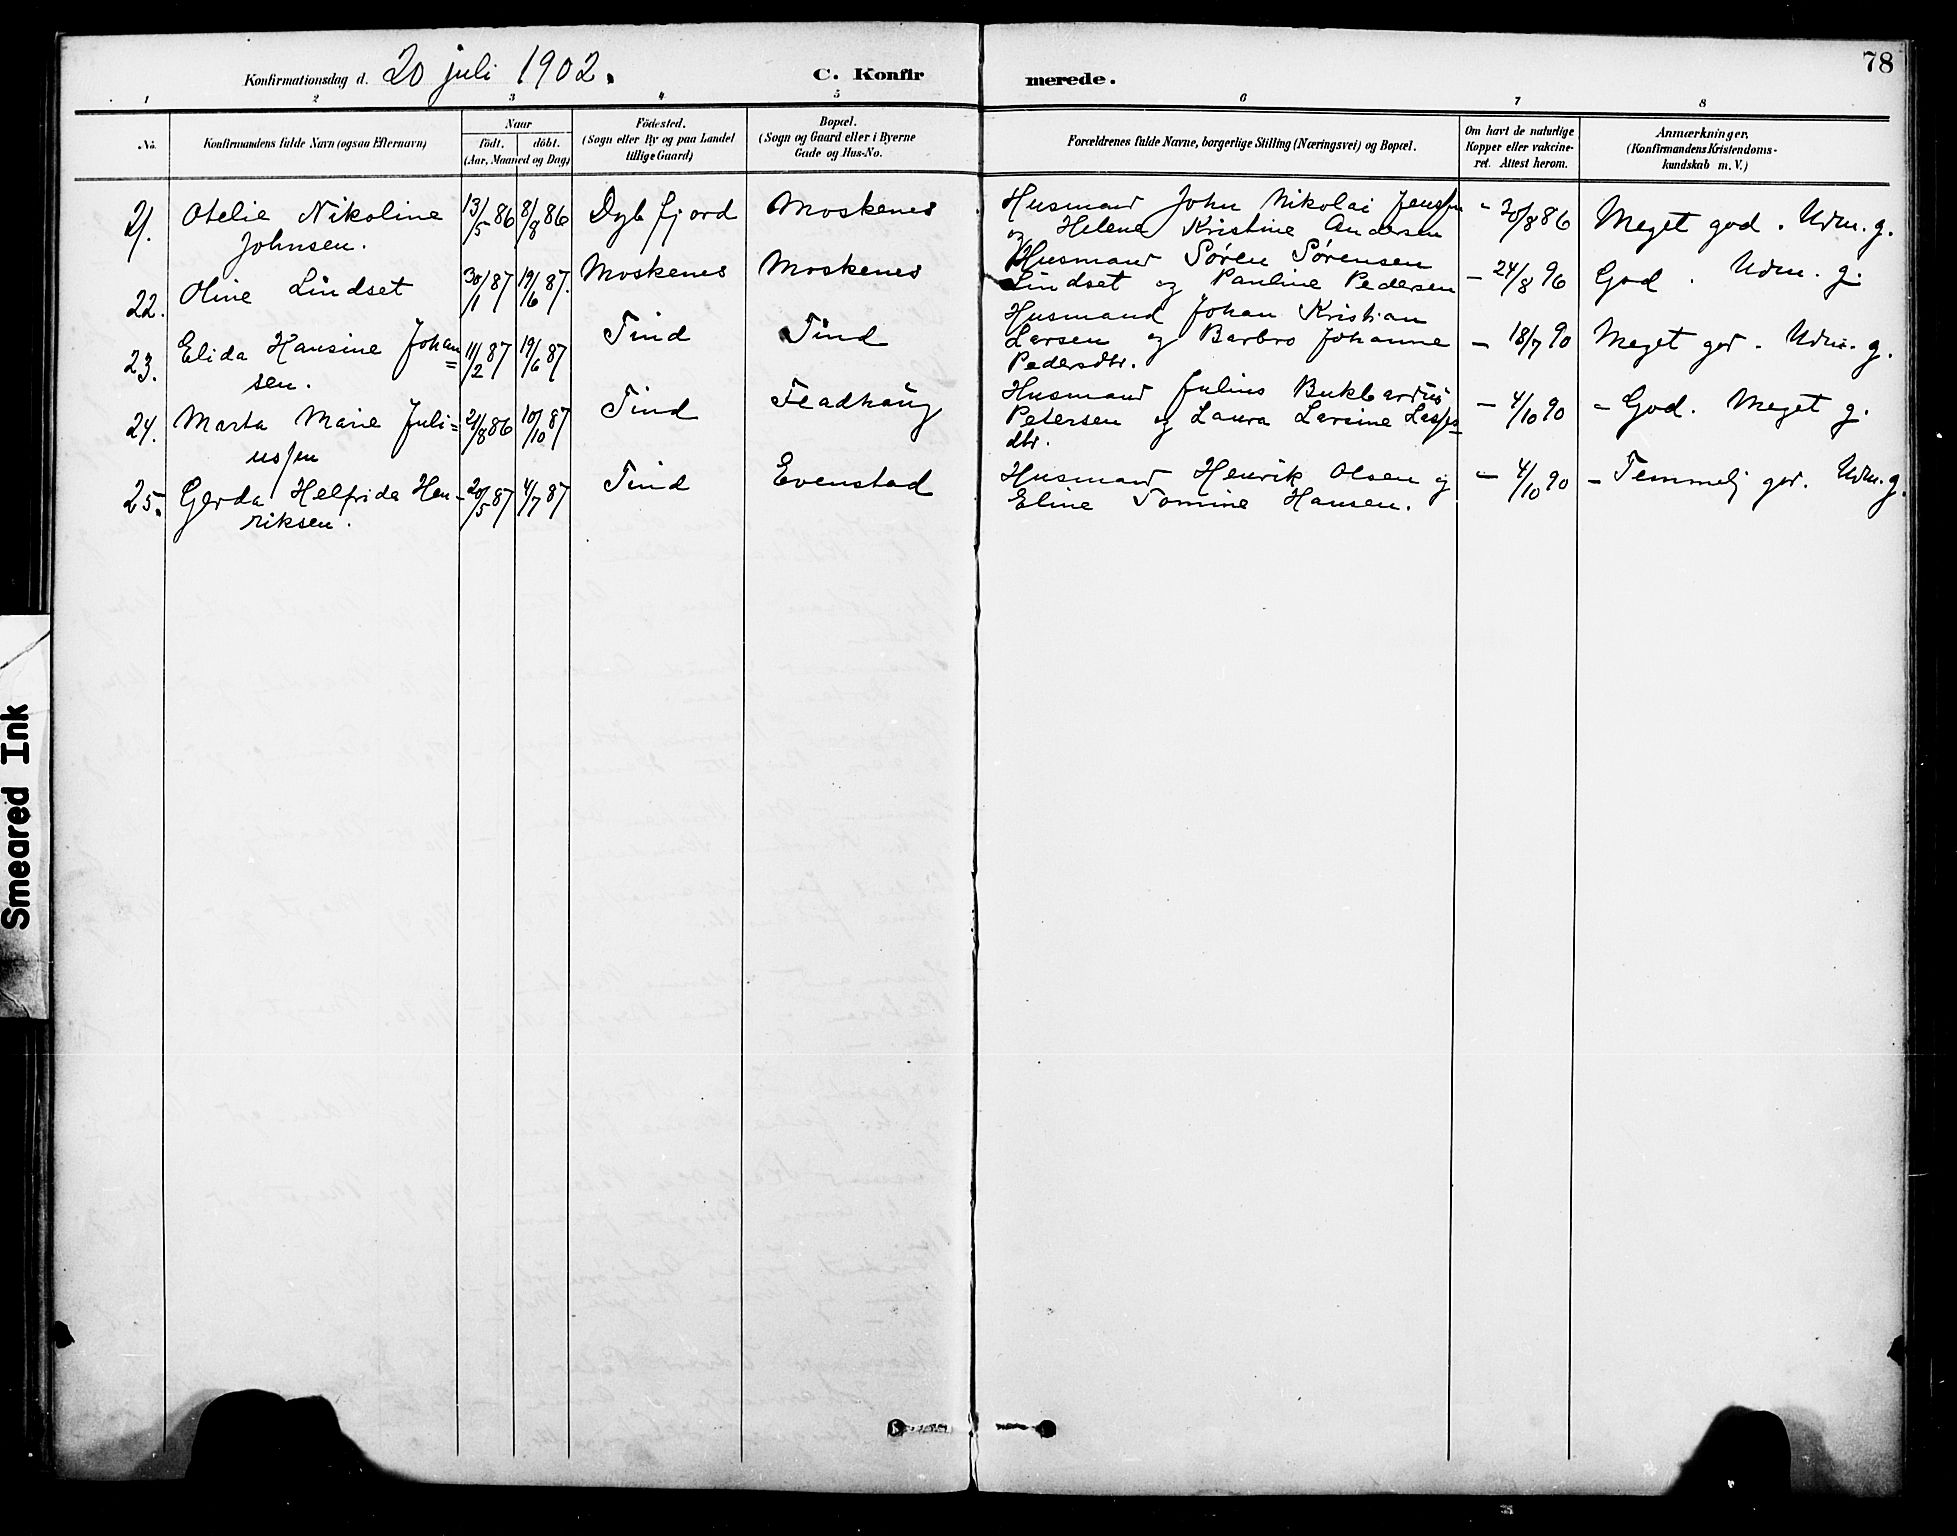 78
Konfirmationsdag d. 20 juli 1902.
C. Konfirmerede.
1 2 3 4 5 6 7 8
No.
Konfirmandens fulde Navn (ogsaa Efternavn)
Naar
födt. döbt.
(Aar, Maaned og Dag)
Födested.
(Sogn eller By og paa Landet
tillige Gaard)
Bopæl.
(Sogn og Gaard eller i Byerne
Gade og Hus-No.
Forældrenes fulde Navne, borgerlige Stilling (Næringsvei) og Bopæl.
Om havt de naturlige
Kopper eller vakcine-
ret. Attest herom.
Anmærkninger.
(Konfirmandens Kristendoms-
kundskab m. V.)
21. Otelie Nikoline 13/5 86 8/8 86 Dybfjord Moskenes Husmand John Nikolai Jenssen - 30/8 86 Meget god. Udm. g.
Johnsen. og Helene Kristine Andersen
22. Oline Lindset 30/1 87 19/6 87. Moskenes Moskenes Husmand Søren Sørensen
Lindset og Pauline Pedersen - 24/8 96 God. Udm. g.
23. Elida Hansine Johan= 11/2 87 19/6 87 Tind Tind Husmand Johan Kristian
sen. Larsen og Barbro Johanne - 18/7 90 Meget god. Udm. g.
Pedersdtr.
24. Marta Marie Juli= 21/8 86 10/10 87 Tind Fladhaug Husmand Julius Bukbardus
ussen Petersen og Laura Larsine Lasses= - 4/10 90 - God. Meget g.
dtr.
25. Gerda Helfrida Hen- 20/5 87 4/7 87 Tind Evenstad Husmand Henrik Olsen og - 4/10 90 - Temmelig god. Udm. g.
riksen. Eline Tomine Hansen.
Smeared Ink